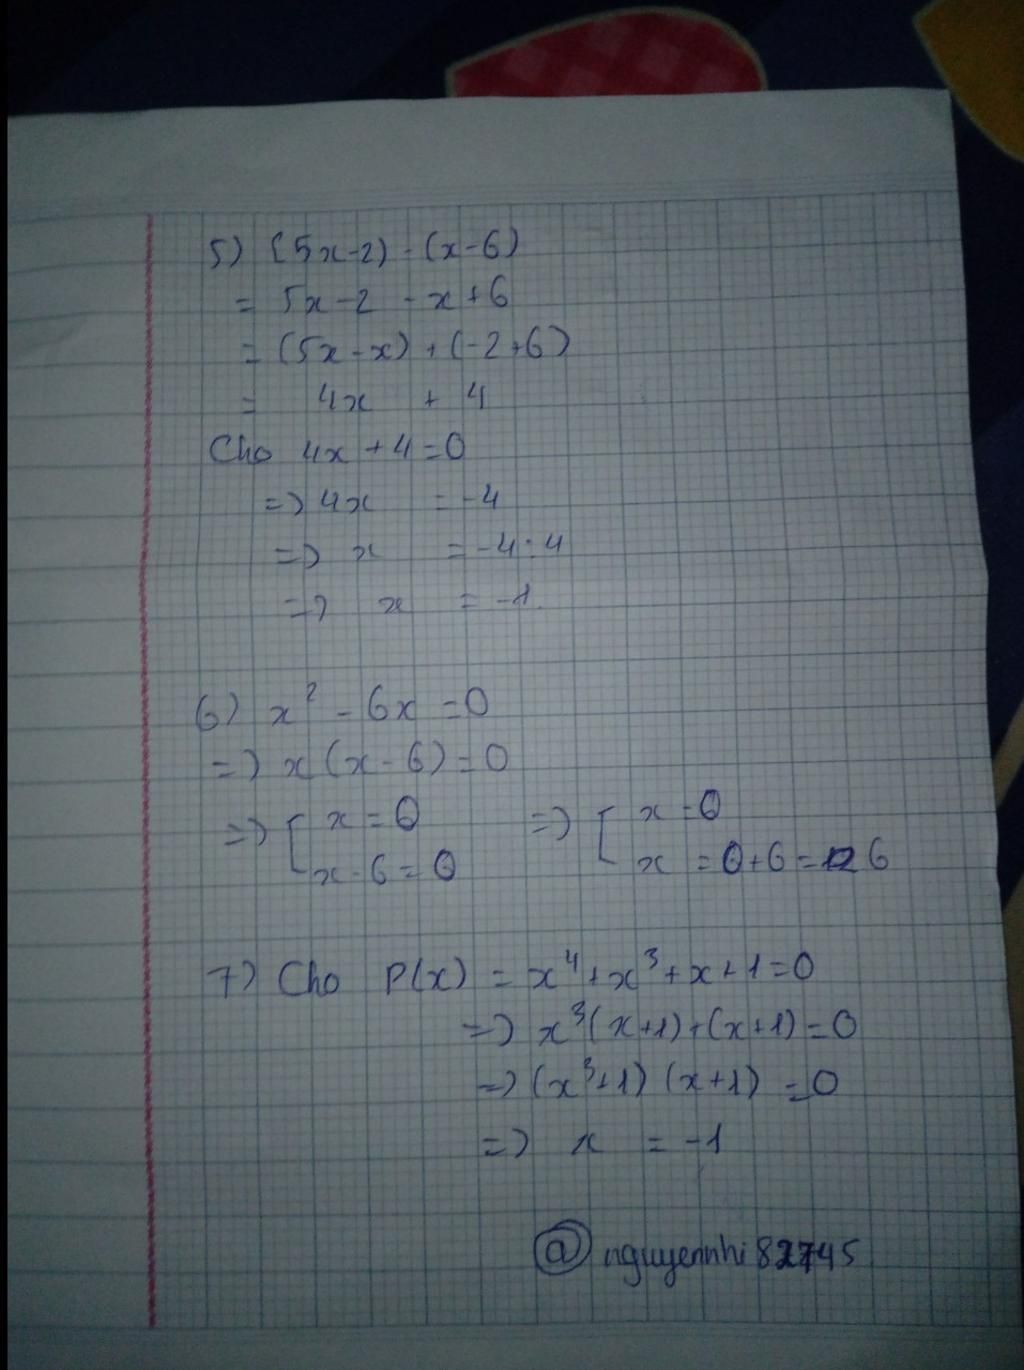 5) (5x-2) - (x-6)
= 5x-2 - x+6
= (5x-x) + (-2+6)
= 4x + 4
Cho 4x+4=0
=> 4x = -4
=> x = -4:4
=> x = -1
6) x² - 6x = 0
=> x(x-6) = 0
=> [ x = 0 => [ x = 0
x-6 = 0 x = 0+6 = 6
7) Cho P(x) = x⁴+x³+x+1=0
=> x³(x+1)+(x+1)=0
=> (x³+1)(x+1) = 0
=> x = -1
@ nguyennhi82745